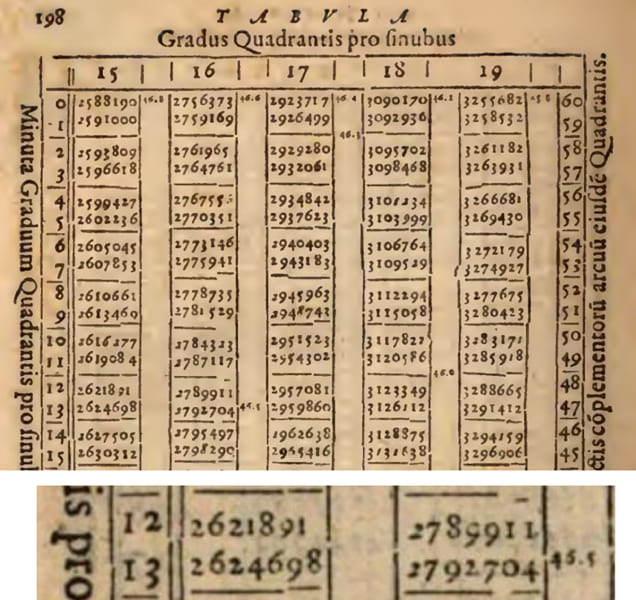 198 TABVLA
Gradus Quadrantis pro sinubus
15 16 17 18 19
0 2588190 46.8 2756373 46.6 2923717 46.4 3090170 46.1 3255682 60
1 2591000 2759169 2926499 3092936 3258532 59
46.3
2 2593809 2761965 2929280 3095702 3261182 58
3 2596618 2764761 2932061 3098468 3263931 57
4 2599427 2767556 2934842 3101234 3266681 56
5 2602236 2770351 2937623 3103999 3269430 55
6 2605045 2773146 2940403 3106764 3272179 54
7 2607853 2775941 2943183 3109529 3274927 53
8 2610661 2778735 2945963 3112294 3277675 52
9 2613469 2781529 2948743 3115058 3280423 51
10 2616277 2784323 2951523 3117821 3283171 50
11 2619084 2787117 2954302 3120586 3285918 49
46.0
12 2621891 2789911 2957081 3123349 3288665 48
13 2624698 2792704 46.5 2959860 3126112 3291412 47
14 2627505 2795497 2962638 3128875 3294159 46
15 2630312 2798290 2965416 3131638 3296906 45
Minuta Graduum Quadrantis pro sinu
ctis cóplementorū arcuū eiusdē Quadrantis.
is pro
12 2621891 2789911
13 2624698 2792704 46.5